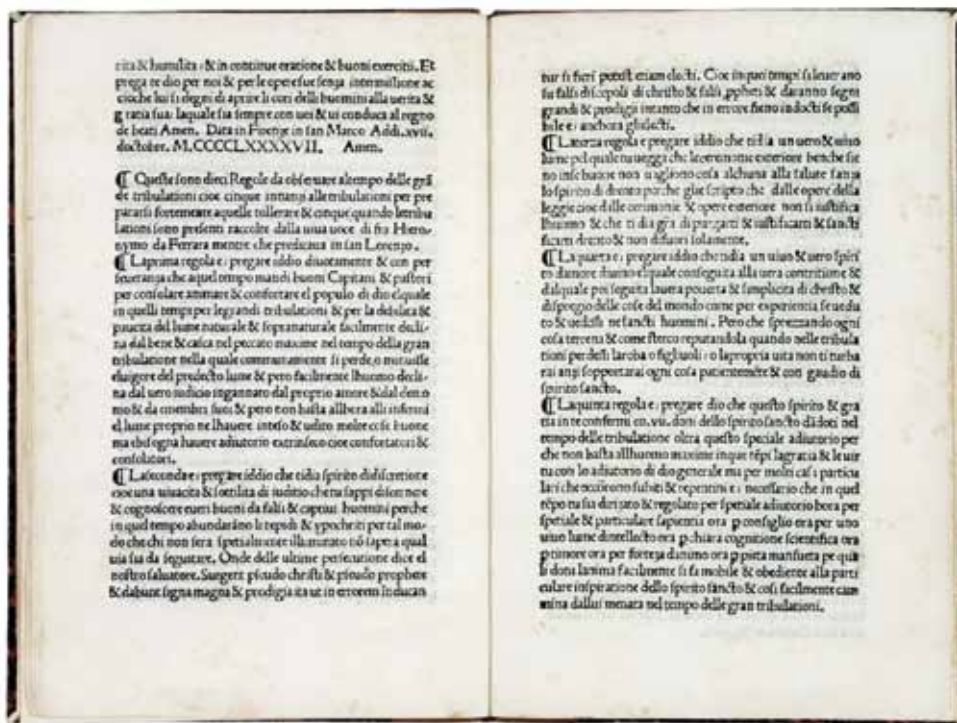 rita & humilita: & in continue oratione & buoni exercitii. Et
prega te dio per noi & per le opere sue senza intermissione ac
cioche lui si degni di aprire li cori delli huomini alla uerita &
gratia sua: laquale sia sempre con uoi & ui conduca al regno
de beati Amen. Data in Firenze in san Marco Addi. xvii.
doctobre. M.CCCCLXXXXVII. Amen.
¶ Queste sono dieci Regole da obseruare al tempo delle grã
de tribulationi cioe cinque innanzi alle tribulationi per pre
pararsi fortemente aquelle tollerare & cinque quando letribu
lationi sono presenti raccolte dalla uiua uoce di fra Hiero-
nymo da Ferrara mentre che predicaua in san Lorenzo.
¶ Laprima regola e: pregare iddio diuotamente & con per
seueranza che aquel tempo mandi buoni Capitani & pastori
per consolare animare & confortare el populo di dio elquale
in quelli tempi per legrandi tribulationi & per la debilita &
paucita del lume naturale & sopranaturale facilmente decli-
na dal bene & casca nel peccato maxime nel tempo della gran
tribulatione nella quale communamente si perde, o minuisse
eluigore del predecto lume & pero facilmente lhuomo decli-
na dal uero iudicio ingannato dal proprio amore & dal demo
nio & da membri suoi & pero non basta allhora alli infermi
el lume proprio ne lhauere inteso & udito molte cose buone
ma bisogna hauere adiutorio extrinseco cioe confortatori &
consolatori.
¶ Laseconda e: pregare iddio che tidia spirito didiscretione
cioe una uiuacita & sottilita di iuditio che tu sappi discernere
& cognoscere ueri buoni da falsi & captiui huomini perche
in quel tempo abundarãno le tepidi & ypochriti per tal mo-
do che chi non sera spetialmente illuminato nõ sapera qual
uia sia da seguitare. Onde delle ultime persecutione dice el
nostro saluatore. Surgent pseudo christi & pseudo prophete
& dabunt segna magna & prodigia ita ut in errorem inducan
tur si fieri potest etiam electi. Cioe in quei tempi si leuerano
su falsi discepoli di christo & falsi ꝓpheti & daranno segni
grandi & prodigii intanto che in errore fieno inducti se possi
bile e: anchora glielecti.
¶ Laterza regola e pregare iddio che tidia un uero & uiuo
lume pel quale tu uegga che lecerimonie exteriore benche sie
no inse buone non uagliono cosa alchuna alla salute sanza
lo spirito di drento perche glie scripto che dalle opere della
leggie cioe dalle cerimonie & opere exteriore non si iustifica
lhuomo & che ti dia gratia di purgarti & iustificarti & sancti
ficarti drento & non difuori solamente.
¶ La quarta e: pregare iddio che ti dia un uiuo & uero spiri
to damore diuino elquale conseguita alla uera contritione &
dalquale poi seguita lauera pouerta & simplicita di christo &
dispregio delle cose del mondo come per experientia se uedu
to & uedesi ne sancti huomini. Pero che sprezzando ogni
cosa terrena & come sterco reputandola quando nelle tribula
tioni perdesti laroba o figliuoli: o lapropria uita non ti turba
rai anzi sopportarai ogni cosa patientemẽte & con gaudio di
spirito sancto.
¶ Laquinta regola e: pregare dio che questo spirito & gra
tia in te confermi co. vii. doni dello spirito sancto dãdoti nel
tempo delle tribulatione oltra questo speciale adiutorio per
che non basta allhuomo maxime inque tẽpi lagratia & le uir
tu con lo adiutorio di dio generale ma per molti casi particu
lari che occorrono subiti & repentini e: necessario che in quel
tẽpo tu sia dirizato & regolato per spetiale adiutorio hora per
spetiale & particulare sapientia ora ꝑ consiglio ora per uno
uiuo lume dintellecto ora ꝑ chiara cognitione scientifica ora
ꝑ timore ora per forteza danimo ora ꝑ pieta mansueta pe qua
li doni lanima facilmente si fa mobile & obediente alla parti
culare inspiratione dello spirito sancto & cosi facilmente cam
mina dallui menata nel tempo delle gran tribulationi.